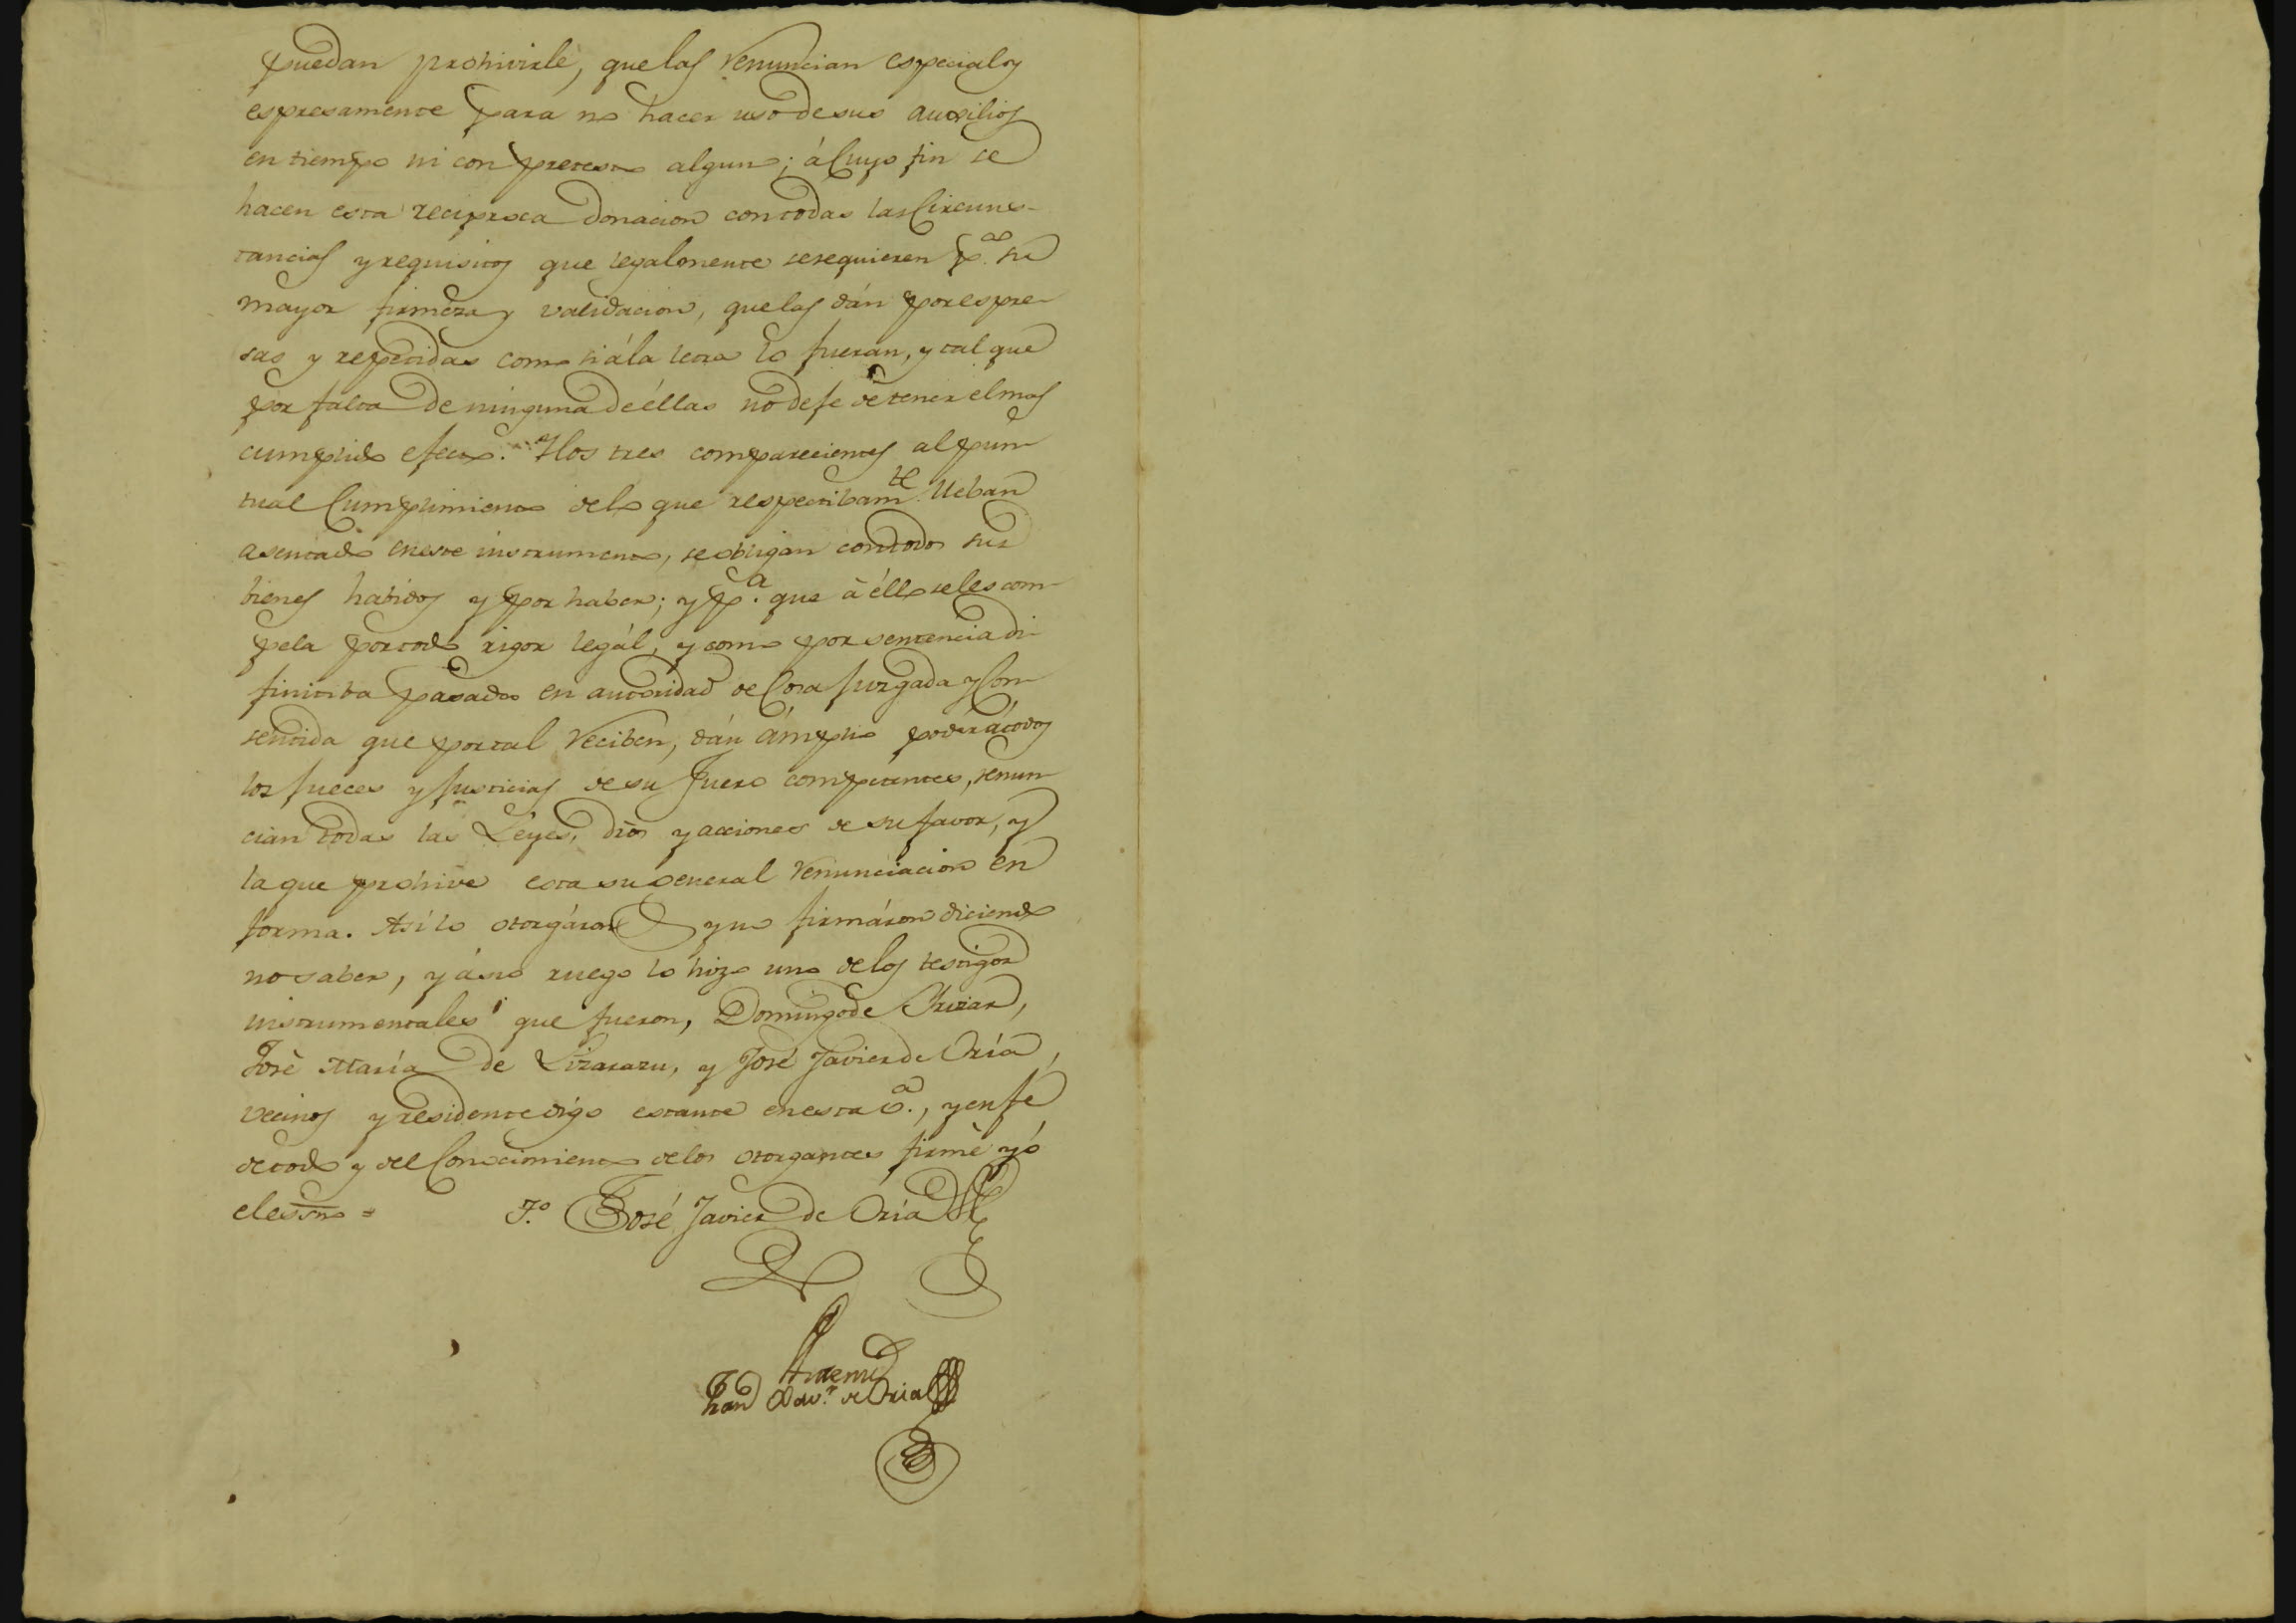 puedan prohivirle, que las renuncian especial y
espresamente para no hacer uso de sus auxilios
en tiempo ni con pretesto alguno; á Cuyo fin se
hacen esta reciproca donacion con todas las Circuns-
tancias y requisitos que legalmente se requieren pª. su
mayor firmeza y validacion, que las dán por espre-
sas y repetidas como si á la letra lo fueran, y tal que
por falta de ninguna de éllas no deje de tener el mas
cumplido efecto. Y los tres comparecientes al pun-
tual Cumplimiento de lo que respectibamte. lleban
asentado en este instrumento, se obligan con todos sus
bienes habidos y por haber; y pª. que à éllo se les com-
pela por todo rigor legál, y como por sentencia di-
finitiba pasada en autoridad de Cosa Juzgada y Con-
sentida que por tal reciben, dán ámplio poder á todos
los Jueces y Justicias de su Fuero competentes, renun-
cian todas las Leyes, dros y acciones de su favor, y
la que prohive esta su general renunciacion en
forma. Así lo otorgáron y no firmáron diciendo
no saber, y á su ruego lo hizo uno de los testigos
instrumentales que fueron, Domingo de
José María de Lizarazu, y José Javier de Oría,
vecinos y residente digo estante en esta vª., y en fé
de todo y del Conocimiento de los otorgantes firmé yó
el essno =   Fº. José Javier de Oría
Antemi
Juan Xavr. de Oria